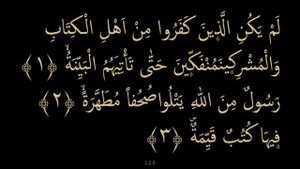 لَمْ يَكُنِ الَّذِينَ كَفَرُوا مِنْ أَهْلِ الْكِتَابِ
وَالْمُشْرِكِينَ مُنْفَكِّينَ حَتَّى تَأْتِيَهُمُ الْبَيِّنَةُ ﴿١﴾
رَسُولٌ مِنَ اللَّهِ يَتْلُوا صُحُفاً مُطَهَّرَةً ﴿٢﴾
فِيهَا كُتُبٌ قَيِّمَةٌ ﴿٣﴾